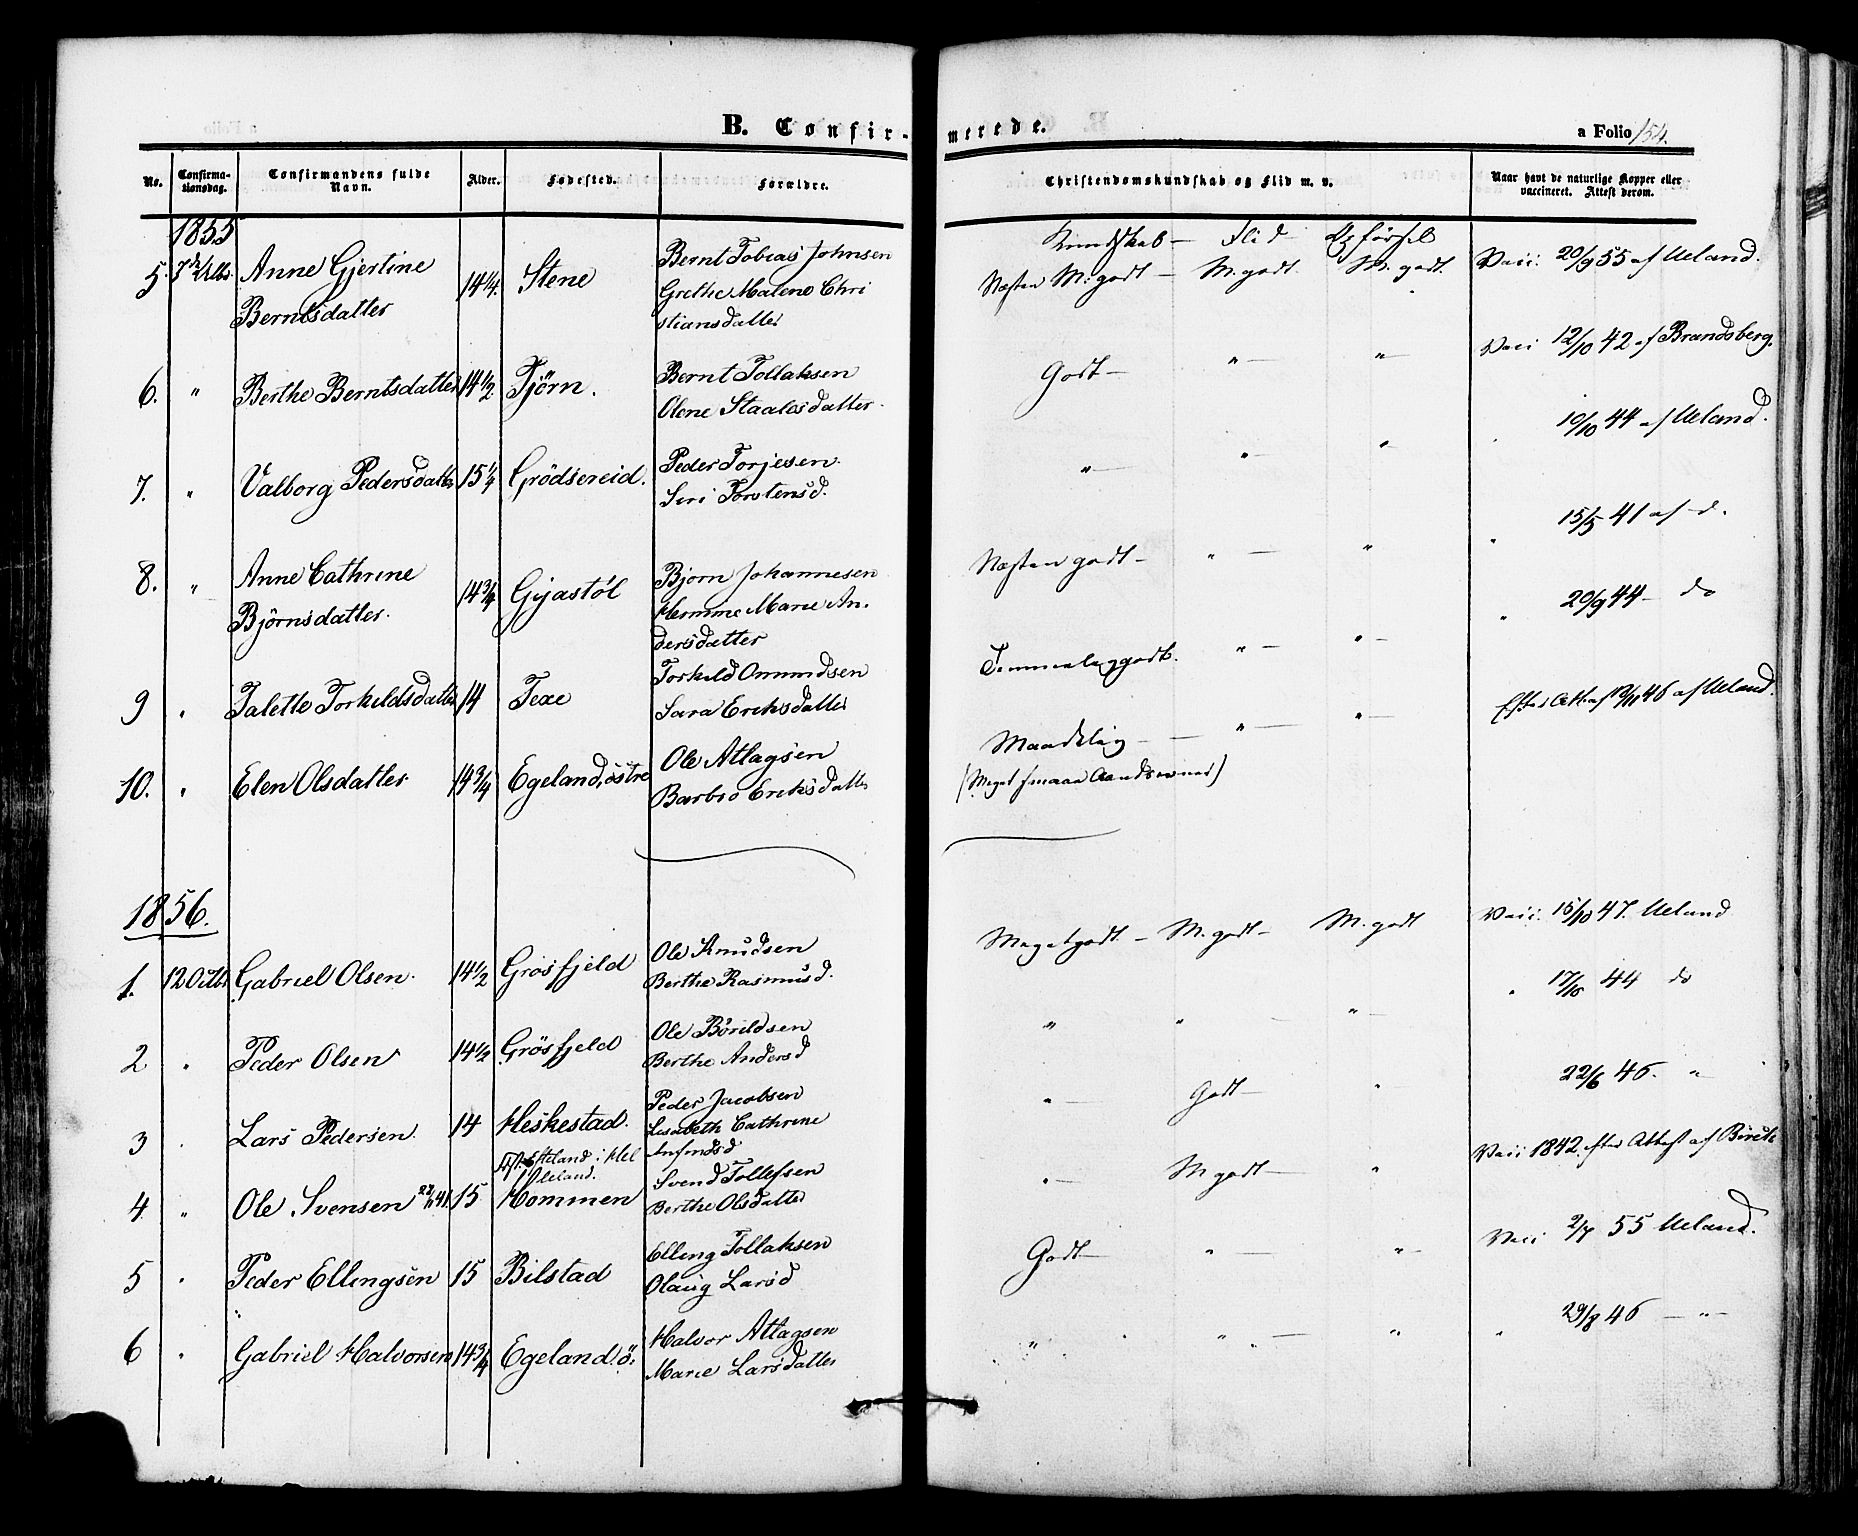 B. Confir-
merede.
a Folio 154.
No.
Confirma-
tionsdag.
Confirmandens fulde
Navn.
Alder.
Fødested.
Forældre.
Christendomskundskab og Flid m. v.
Naar havt de naturlige Kopper eller
vaccineret. Attest derom.
1855
Kundskab - Flid Opførsel
5. 7de
Anne Gjertine
Berntsdatter
14 1/4.
Stene
Bernt Tobias Johnsen
Grethe Malene Chri
stiansdatter
Næsten M. godt - M. godt. M. godt.
Vacc. 20/9 55 af Ueland.
6. "
Berthe Berntsdatter
14 1/2
Tjörn.
Bernt Tollaksen
Olene Staalesdatter
Godt - " - " -
Vacc 12/10 42 af Brandsberg.
7. "
Valborg Pedersdatter
15 1/4
Grödsereid.
Peder Torjesen
Siri Torstensd.
" - " - " -
10/10 44 af Ueland.
8. "
Anne Cathrine
Björnsdatter.
14 3/4
Gyastöl
Bjorn Johannesen
Hemme Marie An.
dersdatter
Næsten godt - " - "
" 15/5 41 af d.
9 "
Talette Torkildsdatter
14
Texe
Torkild Omundsen
Sara Eriksdatter
Temmelig godt. " - " -
" 20/9 44 - do
10. "
Elen Olsdatter
14 3/4
Egeland, östre
Ole Atlagsen
Barbro Eriksdatter
Maadelig - " - " -
(Meget smaae Aandsevner)
Efter Att. af 46 af Ueland.
1856.
1. 12 Octbr
Gabriel Olsen.
14 1/2
Grösfjeld
Ole Knudsen
Berthe Rasmusd.
Meget godt. - M. godt - M. godt
Vacc. 15/10 47. Ueland
2 "
Peder Olsen
14 1/2
Grösfjeld
Ole Böreldsen
Berthe Andersd
" " - " -
" 17/10 44 do
3 "
Lars Pedersen.
14
Heskestad.
Peder Jacobsen
Lisabeth Cathrine
Anfindsd
" - Godt - "
22/6 46. "
4 "
Ole Svensen
15
Hommen
Svend Tollefsen
Berthe Olsdatter
" - M godt - "
Vacc 1842. efter Attest af
5 "
Peder Ellingsen
15
Bilstad
Elling Tollaksen
Olaug Larsd
Godt - " - " -
Vacc 2/7 55 Ueland.
6 "
Gabriel Halvorsen
14 3/4
Egeland, ö.
Halvor Atlagsen
Marie Larsdatter
" " - "
" 29/8 46 - " -